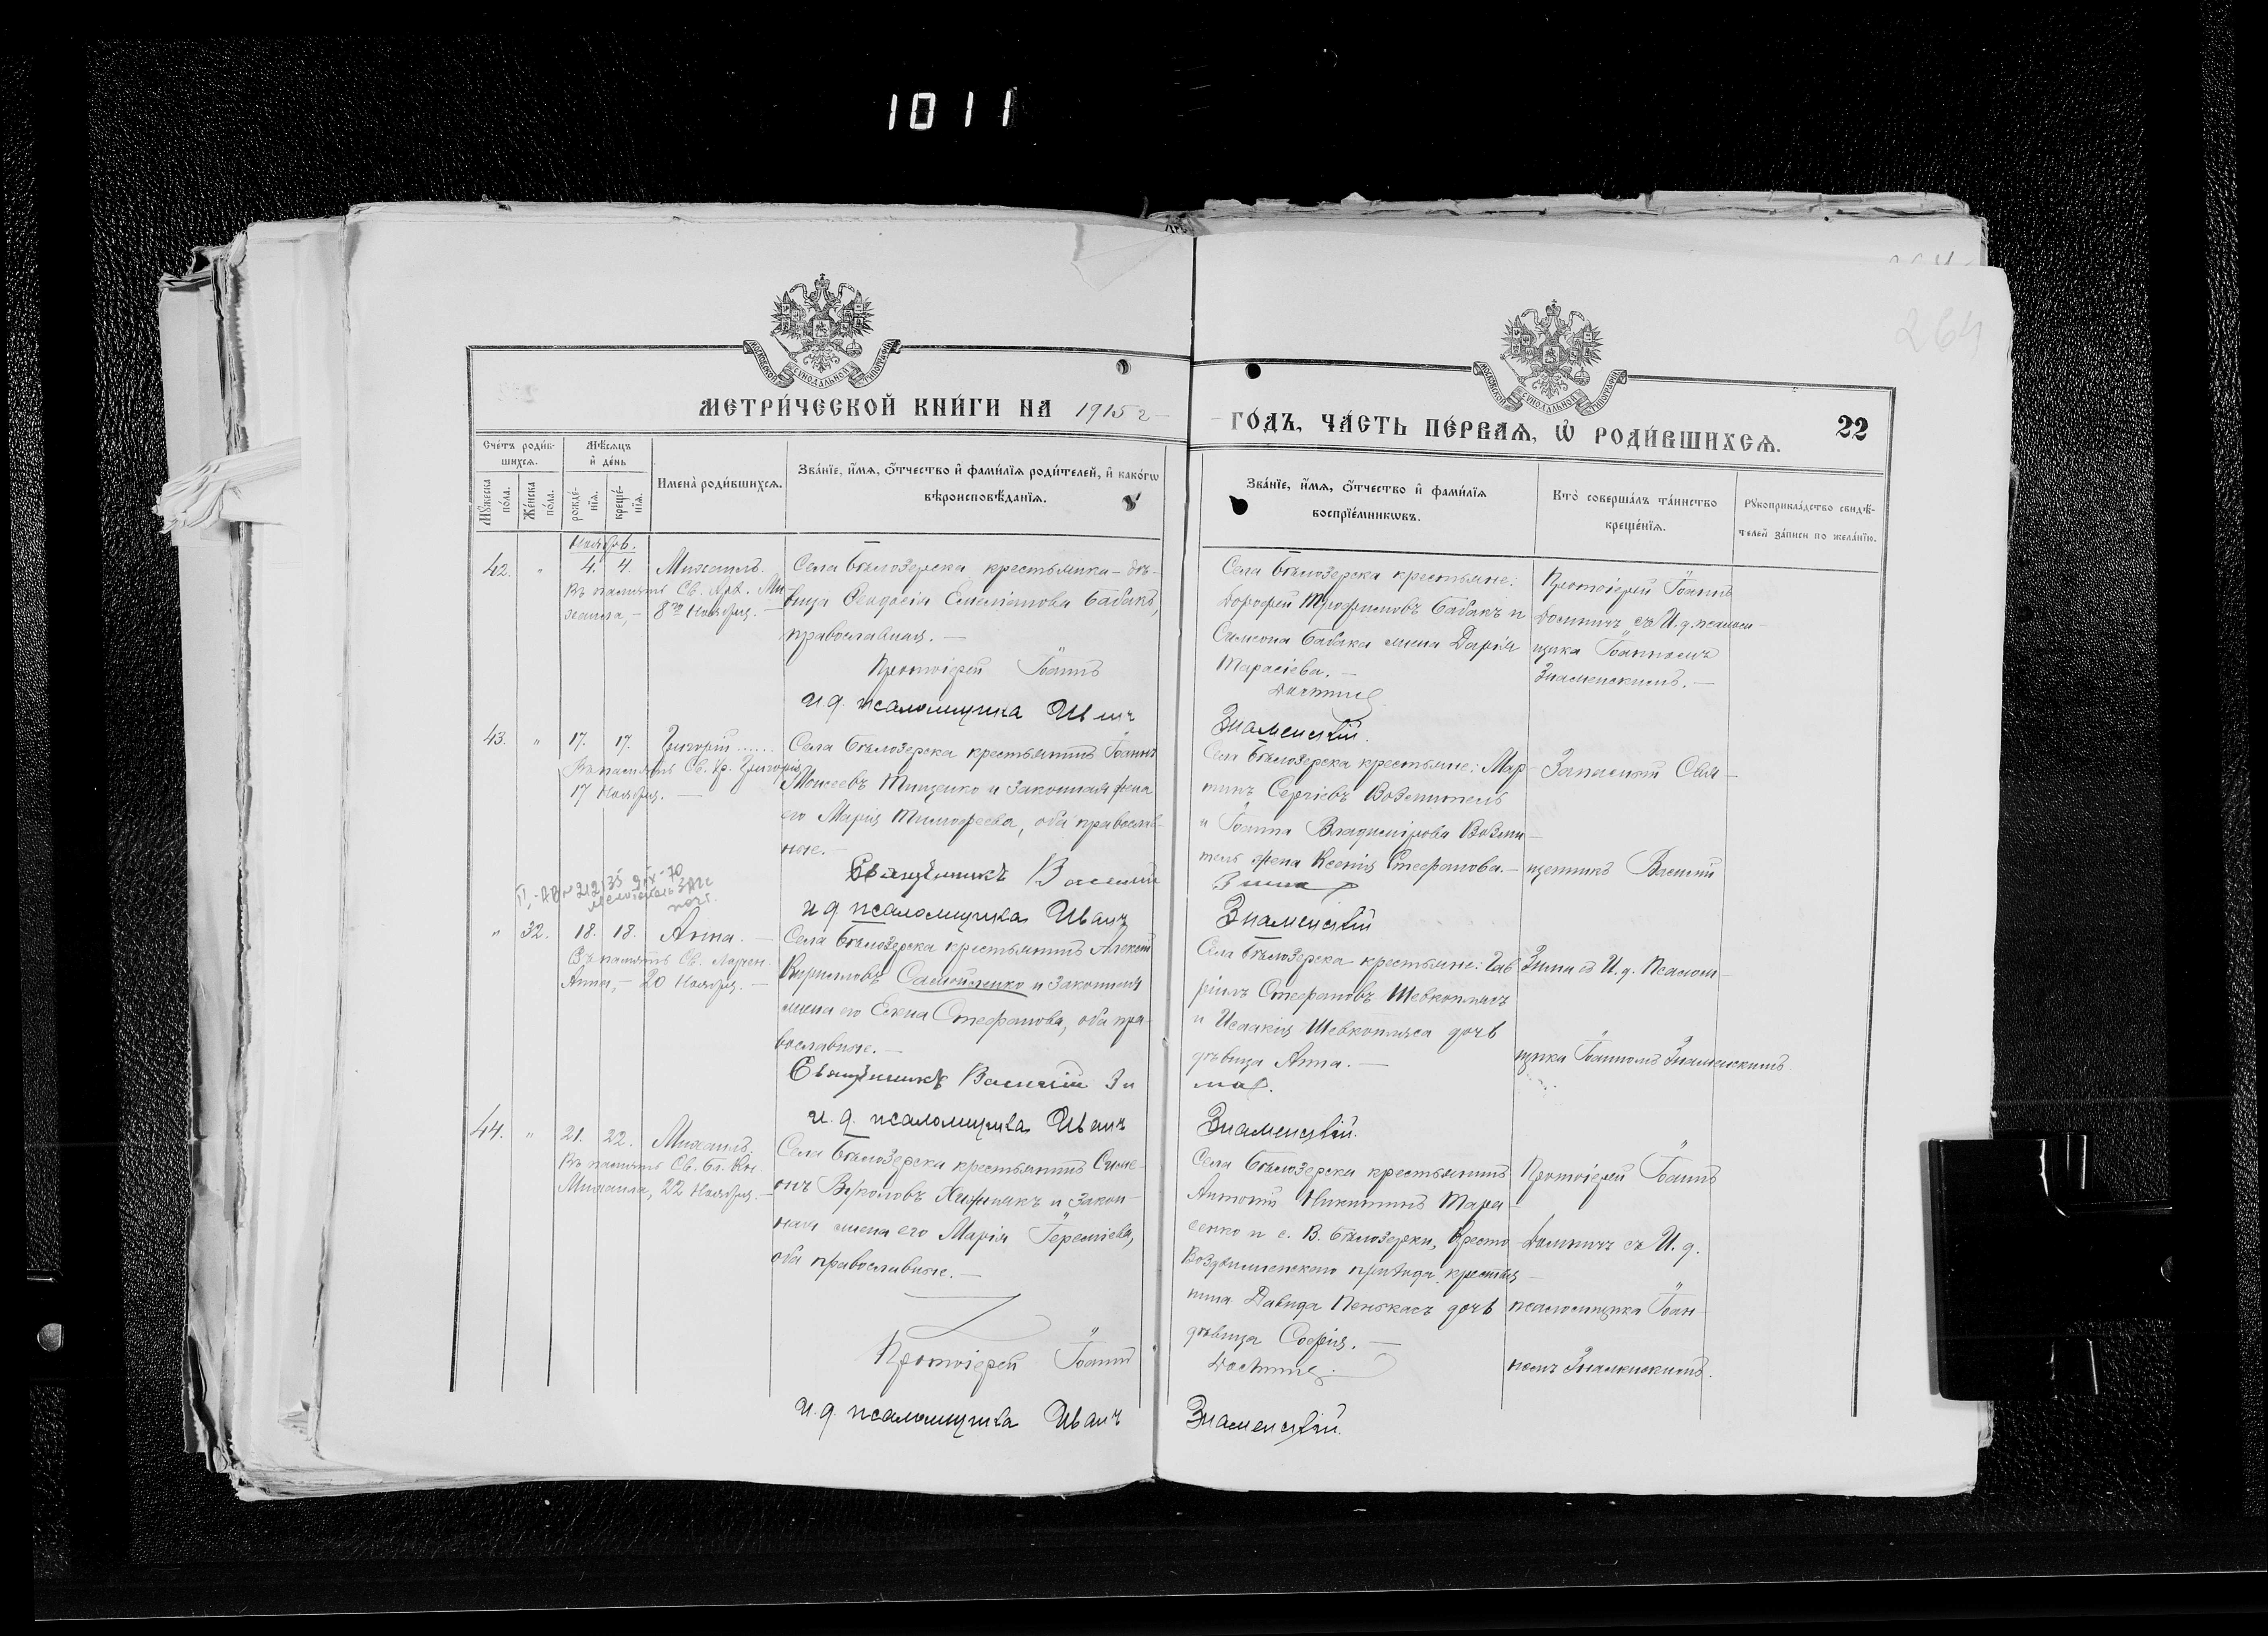 1011
264
МОСКОВСКОЙ СѴНОДАЛЬНОЙ ТИПОГРАФІИ
МОСКОВСКОЙ СѴНОДАЛЬНОЙ ТИПОГРАФІИ
МЕТРИ́ЧЕСКОЙ КНИ́ГИ НА 1915 г
ГО́ДЪ, ЧА́СТЬ ПЕ́РВАѦ, Ѽ РОДИ́ВШИХСѦ. 22
Сче́тъ роди́в-
шихсѧ.
Мꙋ́жеска по́ла.
Же́нска по́ла.
Мѣ́сѧцъ
и҆ де́нь
рожде́-
нїѧ.
креще́-
нїѧ.
И҆мена̀ роди́вшихсѧ.
Зва́нїе, и҆́мѧ, ѻ҆́тчество и҆ фами́лїѧ роди́телей, и҆ како́гѡ
вѣроисповѣ́данїѧ.
Зва́нїе, и҆́мѧ, ѻ҆́тчество и҆ фами́лїѧ
воспрїе́мникѡвъ.
Кто̀ соверша́лъ та́инство
креще́нїѧ.
Рꙋкоприкла́дство свидѣ́-
телей за́писи по жела́нїю.
Ноябрь.
42. " 4. 4. Михаилъ.
Въ память Св. Арх. Ми
хаила, – 8го Ноября. –
Села Бѣлозерска крестьянка – дѣ-
вица Феодосія Емеліанова Бабакъ,
православная. –
Протоіерей Іоаннъ
и д. псаломщика Иванъ
Села Бѣлозерска крестьяне:
Дорофей Трофимовъ Бабакъ и
Симеона Бабака жена Дарія
Тарасіева. –
Знаменскій.
Протоіерей Іоаннъ
съ И. д. псалом-
щика Іоанномъ
Знаменскимъ. –
43. " 17. 17. Григорій ......
Въ память Св. Григорія
17 Ноября. –
Села Бѣлозерска крестьянинъ Іоаннъ
Моисеевъ Тищенко и законная жена
его Марія Тимофеева, оба православ-
ные. –
Священникъ Василій
и д. псаломщика Иванъ
Села Бѣлозерска крестьяне: Мар-
тинъ Сергіевъ Возмитель
и Іоанна Владимірова Возми-
тель жена Ксенія Стефанова. –
Зима
Знаменскій
Запасный Свя-
щенникъ Василій
Зима съ И. д. Псалом-
щика Іоанномъ Знаменскимъ.
" 32. 18. 18. Анна. –
Въ память Св.
Анны, – 20 Ноября. –
Села Бѣлозерска крестьянинъ Алексій
Кирилловъ Самойленко и законная
жена его Стефанова, оба пра-
вославные. –
Священникъ Василій Зи
и. д. псаломщика Иванъ
Села Бѣлозерска крестьяне: Гав
ріилъ Стефановъ Шевкоплясъ
и Исаакія Шевкопляса дочь
дѣвица Анна. –
ма.
Знаменскій.
44. " 21. 22. Михаилъ.
Въ память Св. Бл. Кн.
Михаила, 22 Ноября. –
Села Бѣлозерска крестьянинъ Симе-
онъ Хижнякъ и закон-
ная жена его Марія Іереміева,
оба православные. –
Протоіерей Іоаннъ
и. д. псаломщика Иванъ
Села Бѣлозерска крестьянинъ
Антоній Никитинъ Тара-
сенко и с. В. Бѣлозерки, Кресто
Воздвиженскаго прихода, крестья-
нина Давида дочь
дѣвица Софія. –
Знаменскій.
Протоіерей Іоаннъ
съ И. д.
псаломщика Іоан-
номъ Знаменскимъ.